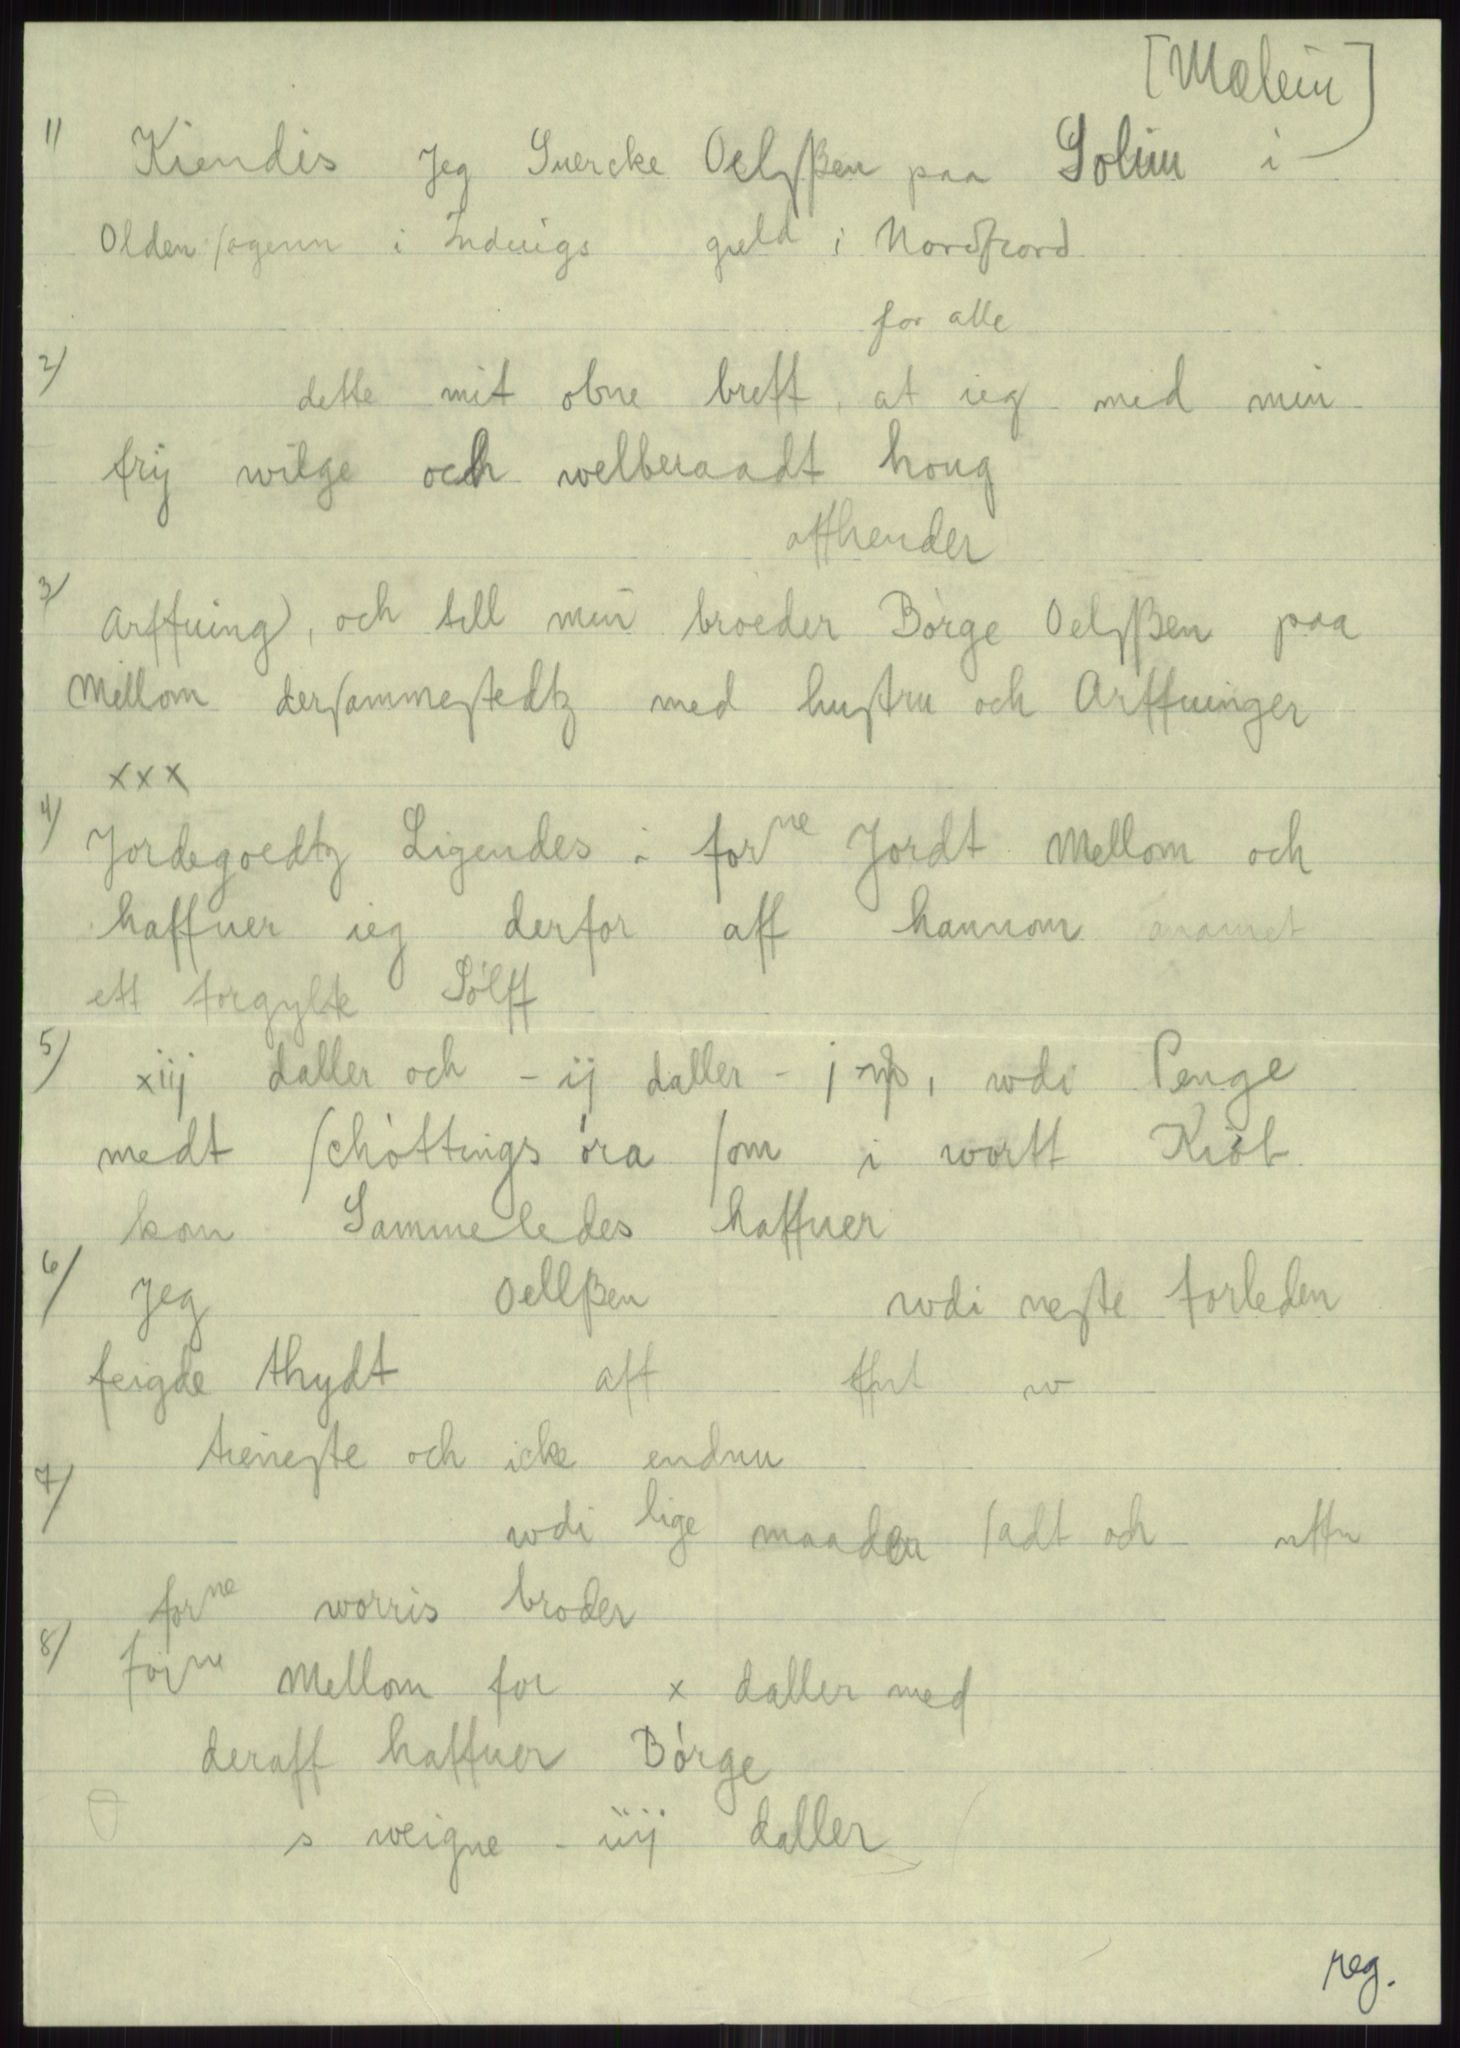 [Mælem]
1) Kiendis Jeg Suercke Oelsßen paa Solim i
Olden sogenn i Indvigs gield i Nordfiord
for alle
2) dette mit obne breff, at ieg med min
frij wilge och welberaadt houg
affhender
3) Arffuing), och till min broeder Børge Oelsßen paa
Mellom dersammestedtz med hustru och Arffuinger
xxx
4) Jordegoedtz Ligendes i forne Jordt Mellom och
haffuer ieg derfor aff hannom anamet
ett forgylte Sölff
5) xiij daller och - ij daller - j , wdi Penge
medt schöttings öra som i wortt Kiöb
kom Sammeledes haffuer
6) Jeg Oellßen wdi neste forleden
feigde thydt aff w
tieneste och icke endnu
7) wdi lige maader sadt och
forne worris broder
8) forne Mellom for x daller med
deraff haffuer Börge
s weigne - iiij daller
reg.